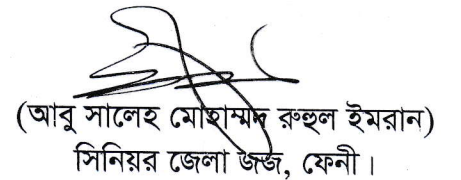 (আবু সালেহ মোহাম্মদ রুহুল ইমরান)
সিনিয়র জেলা জজ, ফেনী।